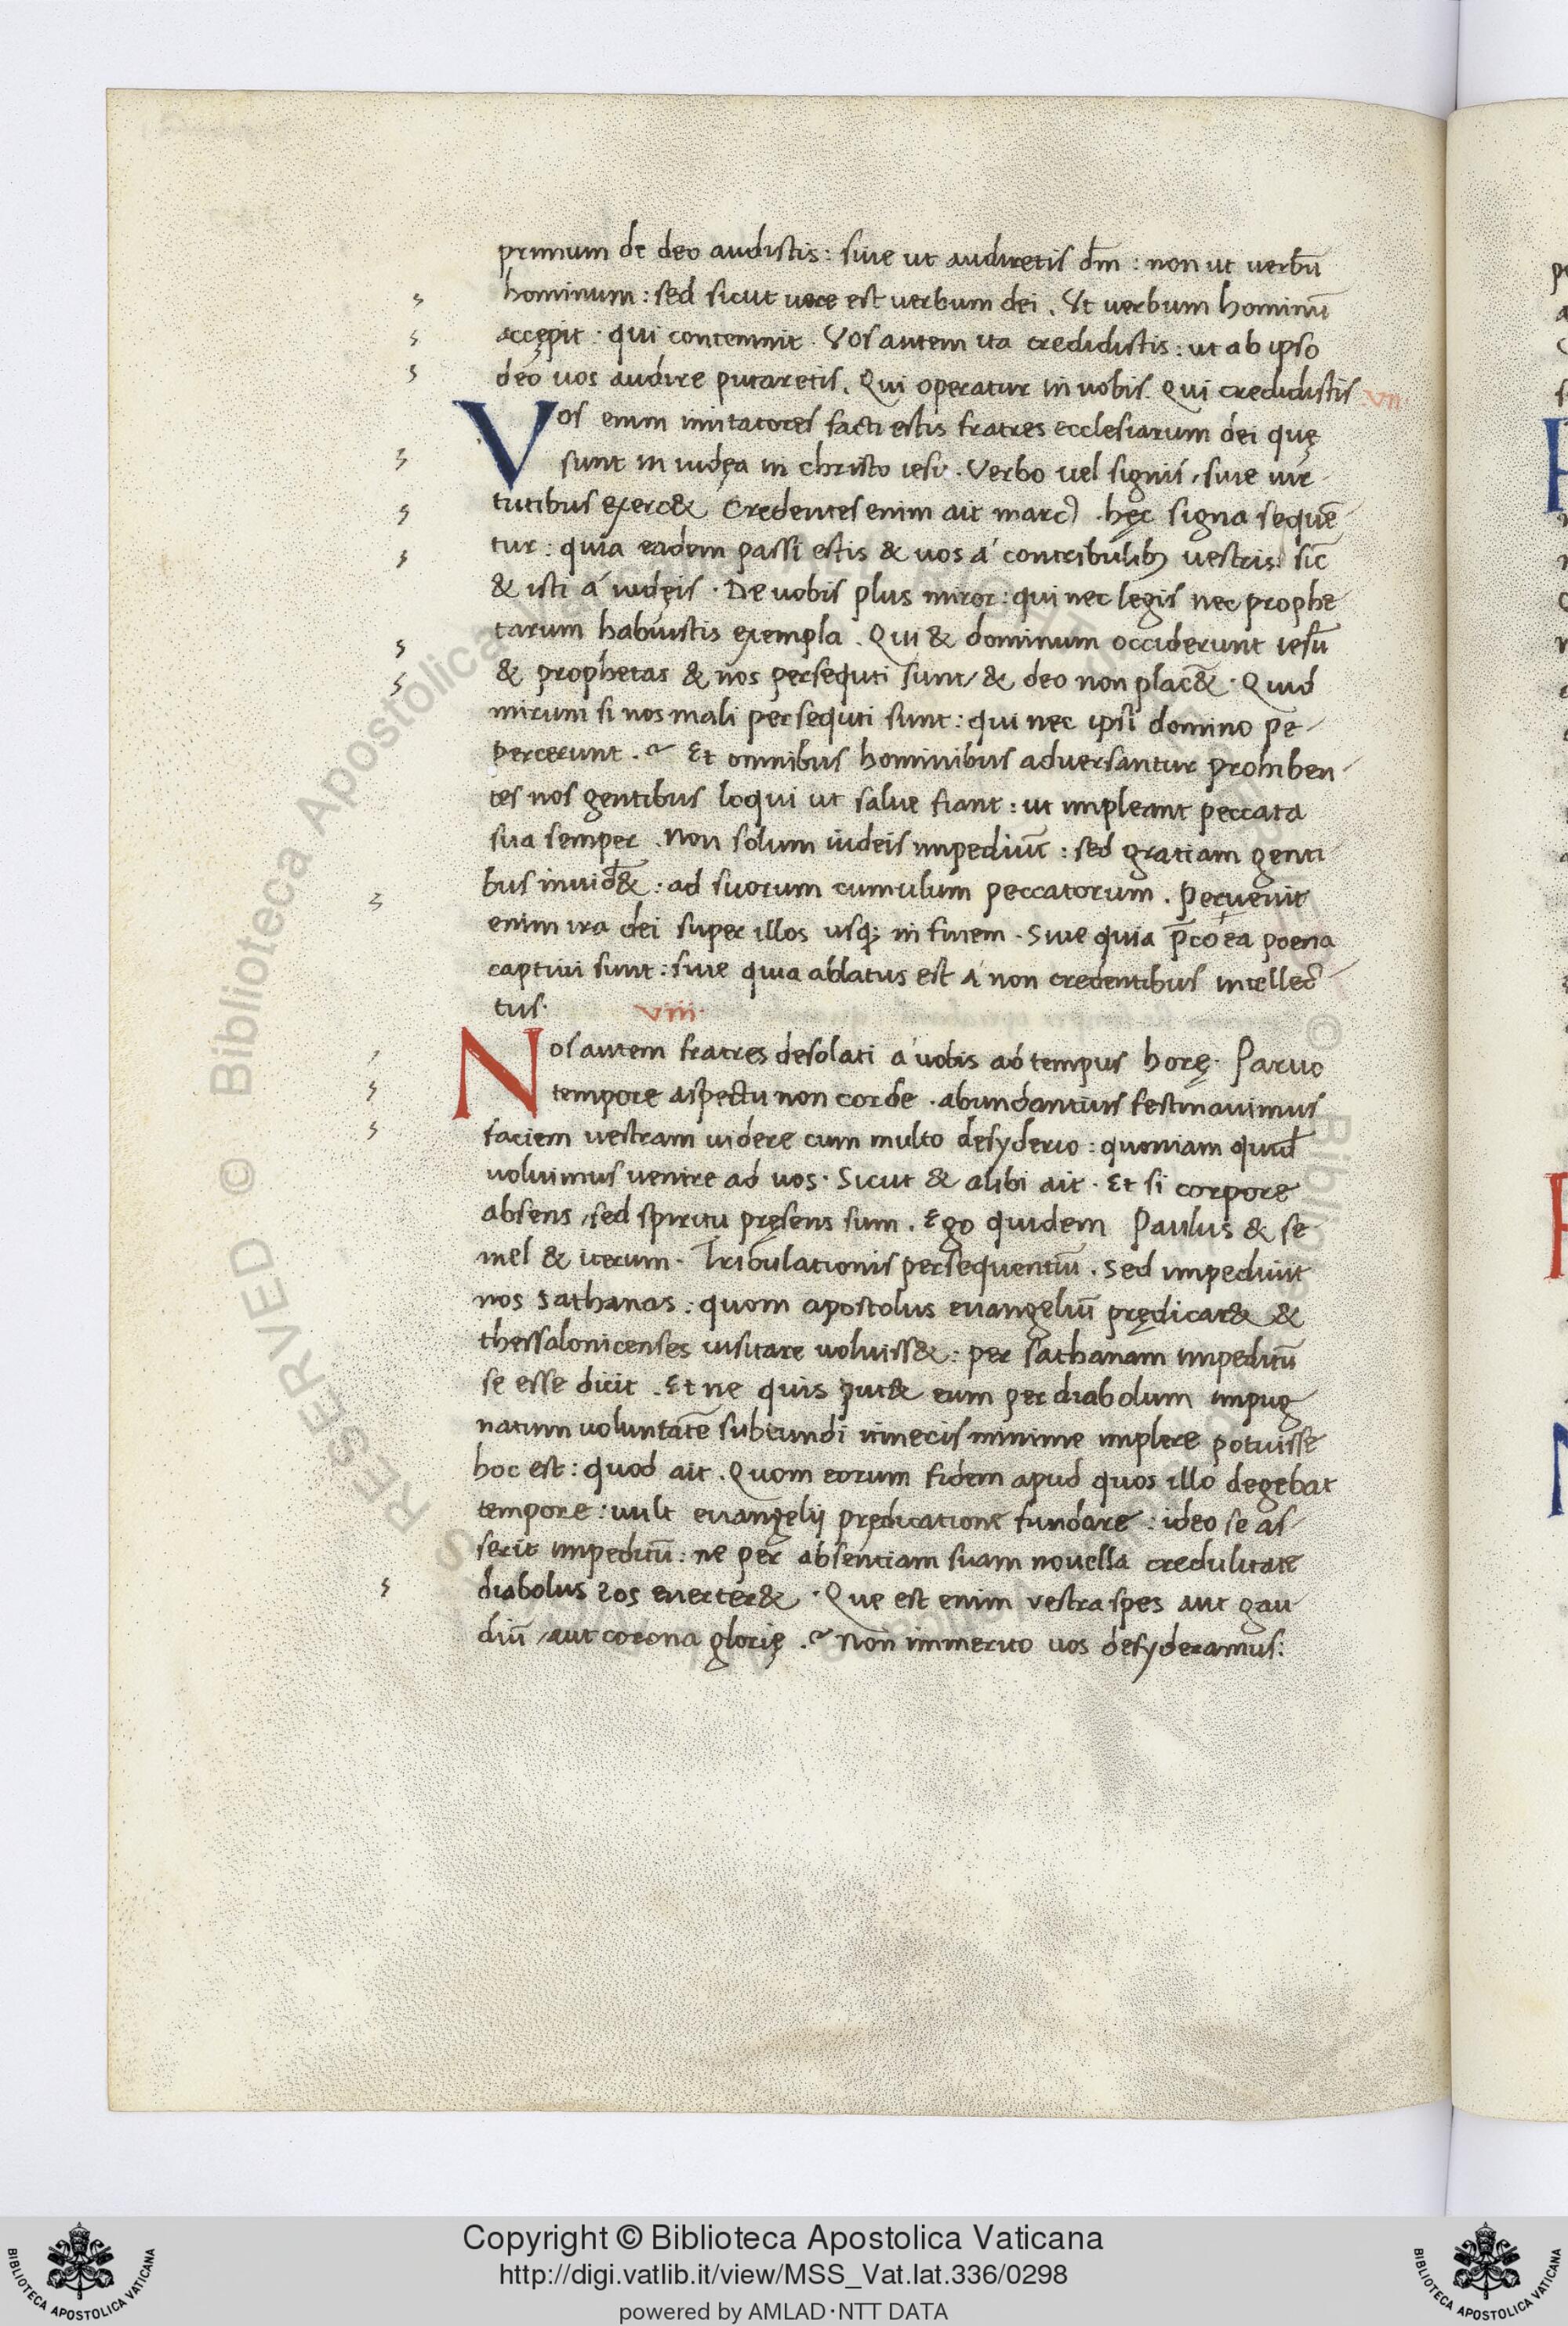 primum de deo audistis: siue ut audiretis dm̄: non ut uerbū
hominum: sed sicut uere est uerbum dei. Vt uerbum hominū
accępit · qui contemnit. Vos autem ita credidistis: ut ab ipso
deo uos audire putaretis. Qui operatur in uobis. Qui credidistis
VII
Vos enim imitatores facti estis fratres ecclesiarum dei quę
sunt in iudęa in christo iesu. Verbo uel signis, siue uir-
tutibus exerc& Credentes enim ait marc⁹. hęc signa sequē-
tur: quia eadem passi estis & uos á contribulibꝫ vestris: sic̄
& isti á iudęis. De uobis plus miror: qui nec legis nec prophe-
tarum habuistis exempla. Qui & dominum occiderunt iesū
& prophetas & nos persequti sunt, & deo non plac̄&. Quid
mirum si nos mali persequti sunt: qui nec ipsi domino pe-
percerunt.? Et omnibus hominibus aduersantur prohiben-
tes nos gentibus loqui ut salue fiant: ut impleant peccata
sua semper. Non solum iudeis impediūt: sed gratiam genti-
bus inuid&: ad suorum cumulum peccatorum. Peruenit
enim ira dei super illos usq; in finem. Siue quia p̄co ea poena
captiui sunt: siue quia ablatus est á non credentibus intellec-
tus.
VIII.
Nos autem fratres desolati á uobis ad tempus horę. Paruo
tempore aspectu non corde. abundantius festinauimus
faciem vestram uidere cum multo desyderio: quoniam quid̄
uoluimus venire ad uos. Sicut & alibi ait. Et si corpore
absens, sed spiritu pręsens sum. Ego quidem Paulus & se
mel & iterum. Tribulationis persequentiū. Sed impediuit
nos sathanas: quom apostolus euangeliū prędicar& &
thessalonicenses uisitare uoluiss&: per sathanam impeditū
se esse dicit. Et ne quis put& eum per diabolum impug
natum voluntatē subeundi itineris minime implere potuisse
hoc est: quod ait. Quom eorum fidem apud quos illo degebat
tempore: uult euangelij prędicatione fundare: ideo se as-
serit impeditū: ne per absentiam suam nouella credulitate
diabolus eos euerter&. Que est enim vestra spes aut gau
diū, aut corona glorię.? Non immerito uos desyderamus:
Copyright © Biblioteca Apostolica Vaticana
http://digi.vatlib.it/view/MSS_Vat.lat.336/0298
powered by AMLAD·NTT DATA
BIBLIOTECA APOSTOLICA VATICANA
BIBLIOTECA APOSTOLICA VATICANA